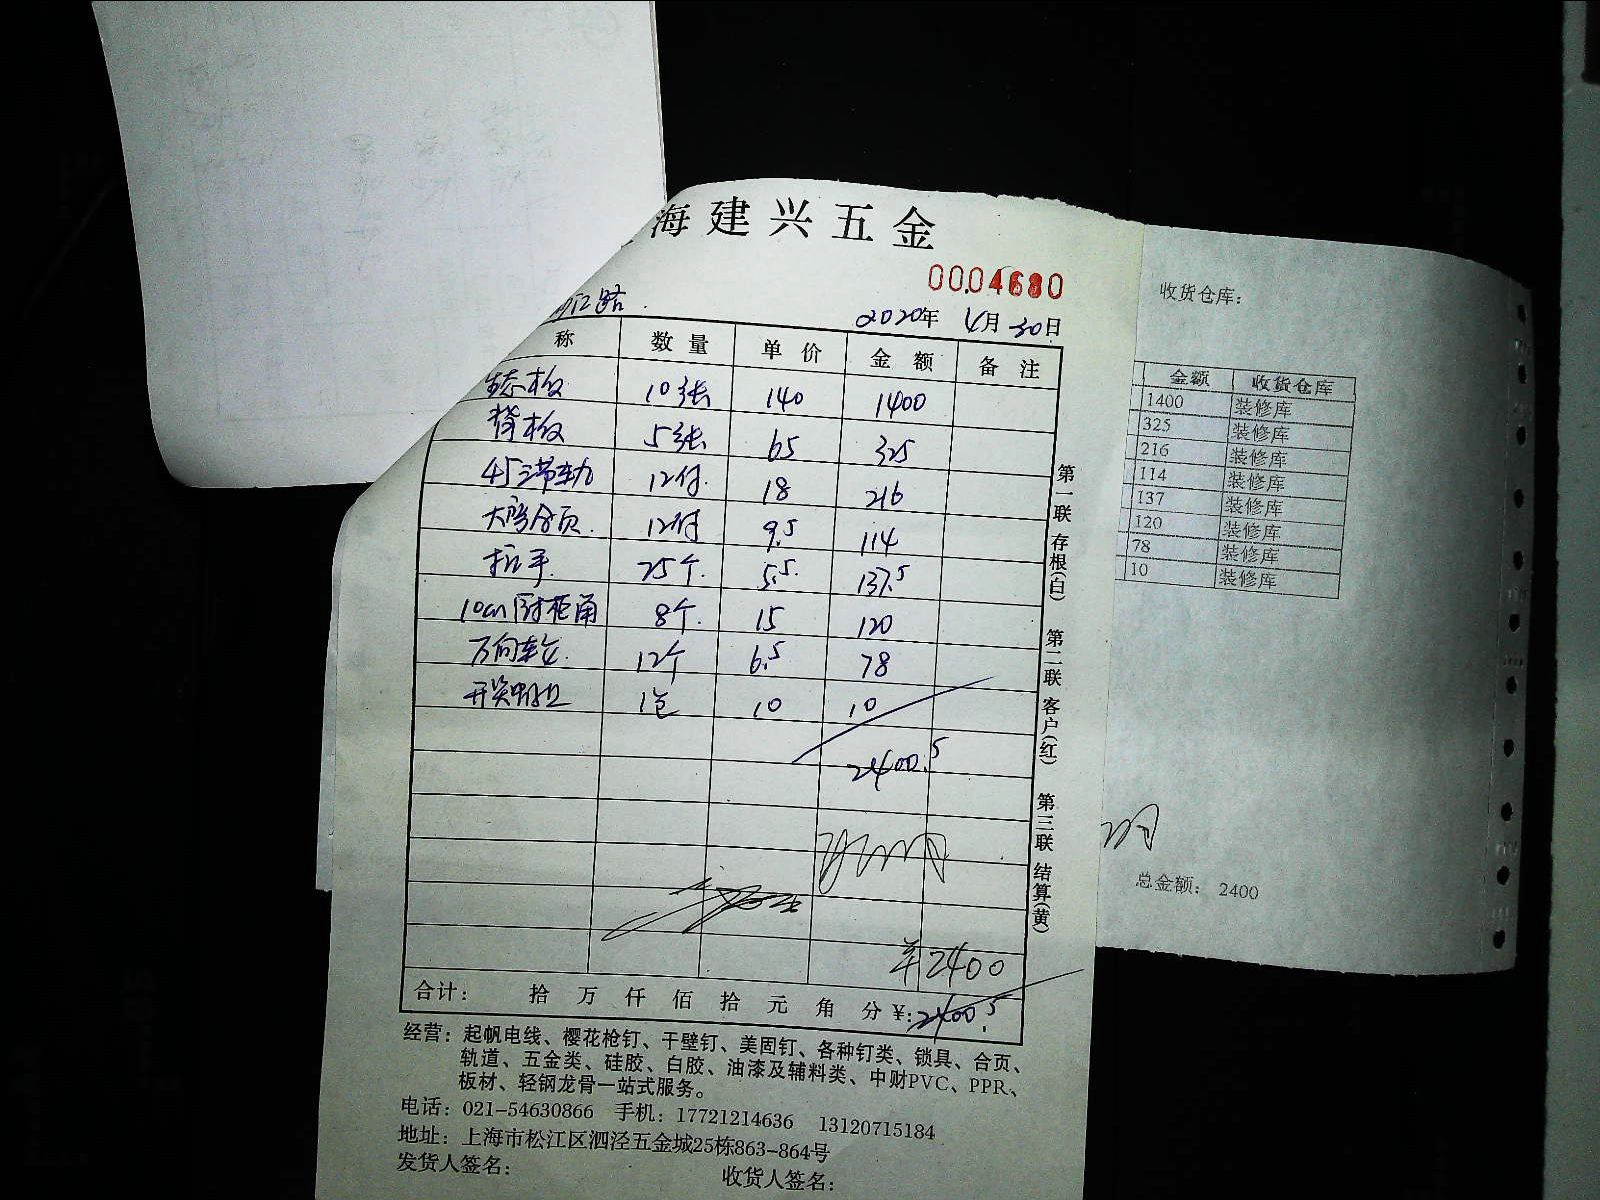 海建兴五金
0004680
江路
2020年 4月 30日
称 数量 单价 金额 备注
生态板 10张 140 1400
背板 5张 65 325
45三节轨 12付 18 216
大弯合页 12付 9.5 114
拉手 25个 5.5 137.5
10cm 橱柜角 8个 15 120
万向轮 12个 6.5 78
1包 10 10
2400.5
¥2400
合计: 拾 万 仟 佰 拾 元 角 分 ¥:2400.5
经营: 起帆电线、樱花枪钉、干壁钉、美固钉、各种钉类、锁具、合页、
轨道、五金类、硅胶、白胶、油漆及辅料类、中财PVC、PPR、
板材、轻钢龙骨一站式服务。
电话: 021-54630866 手机: 17721214636 13120715184
地址: 上海市松江区泗泾五金城25栋863-864号
发货人签名: 收货人签名:
第一联 存根(白) 第二联 客户(红) 第三联 结算(黄)
收货仓库:
金额 收货仓库
1400 装修库
325 装修库
216 装修库
114 装修库
137 装修库
120 装修库
78 装修库
10 装修库
总金额: 2400